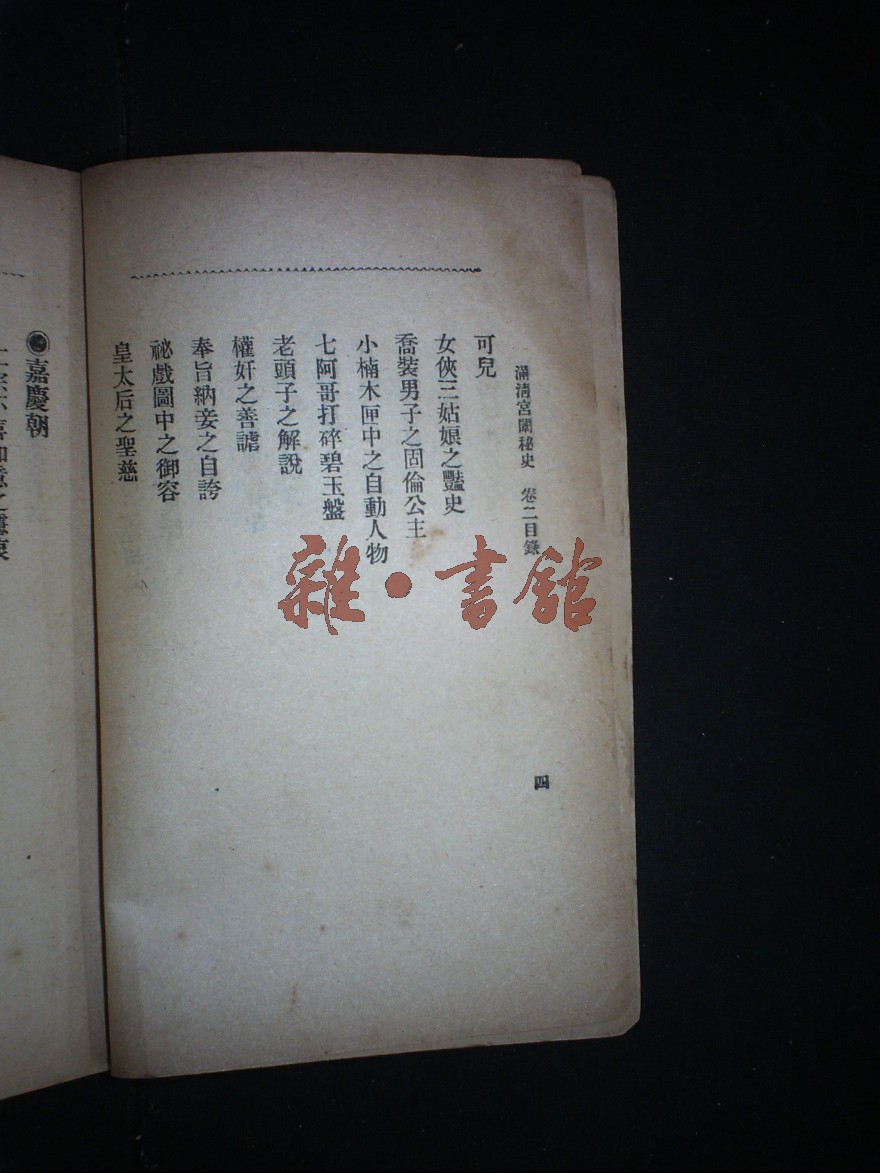 滿淸宮闈秘史　卷二目錄
四
可兒
女俠三姑娘之豔史
喬裝男子之固倫公主
小楠木匣中之自動人物
七阿哥打碎碧玉盤
老頭子之解說
權奸之善謔
奉旨納妾之自誇
祕戲圖中之御容
皇太后之聖慈
嘉慶朝
雜·書館